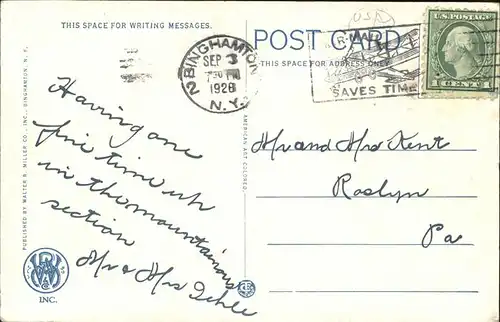 THIS SPACE FOR WRITING MESSAGES.
POST CARD
THIS SPACE FOR ADDRESS ONLY
USA
BINGHAMTON
2
SEP 3
7 30 PM
1928
N.Y.
AIR-MAIL
SAVES TIME
U.S. POSTAGE
1 CENT 1
Having one
fine time up
in the mountainous
section
Mr & Mrs
Mr and Mrs Kent
Roslyn
Pa
PUBLISHED BY WALTER R. MILLER CO. INC., BINGHAMTON, N. Y.
AMERICAN ART COLORED
INC.